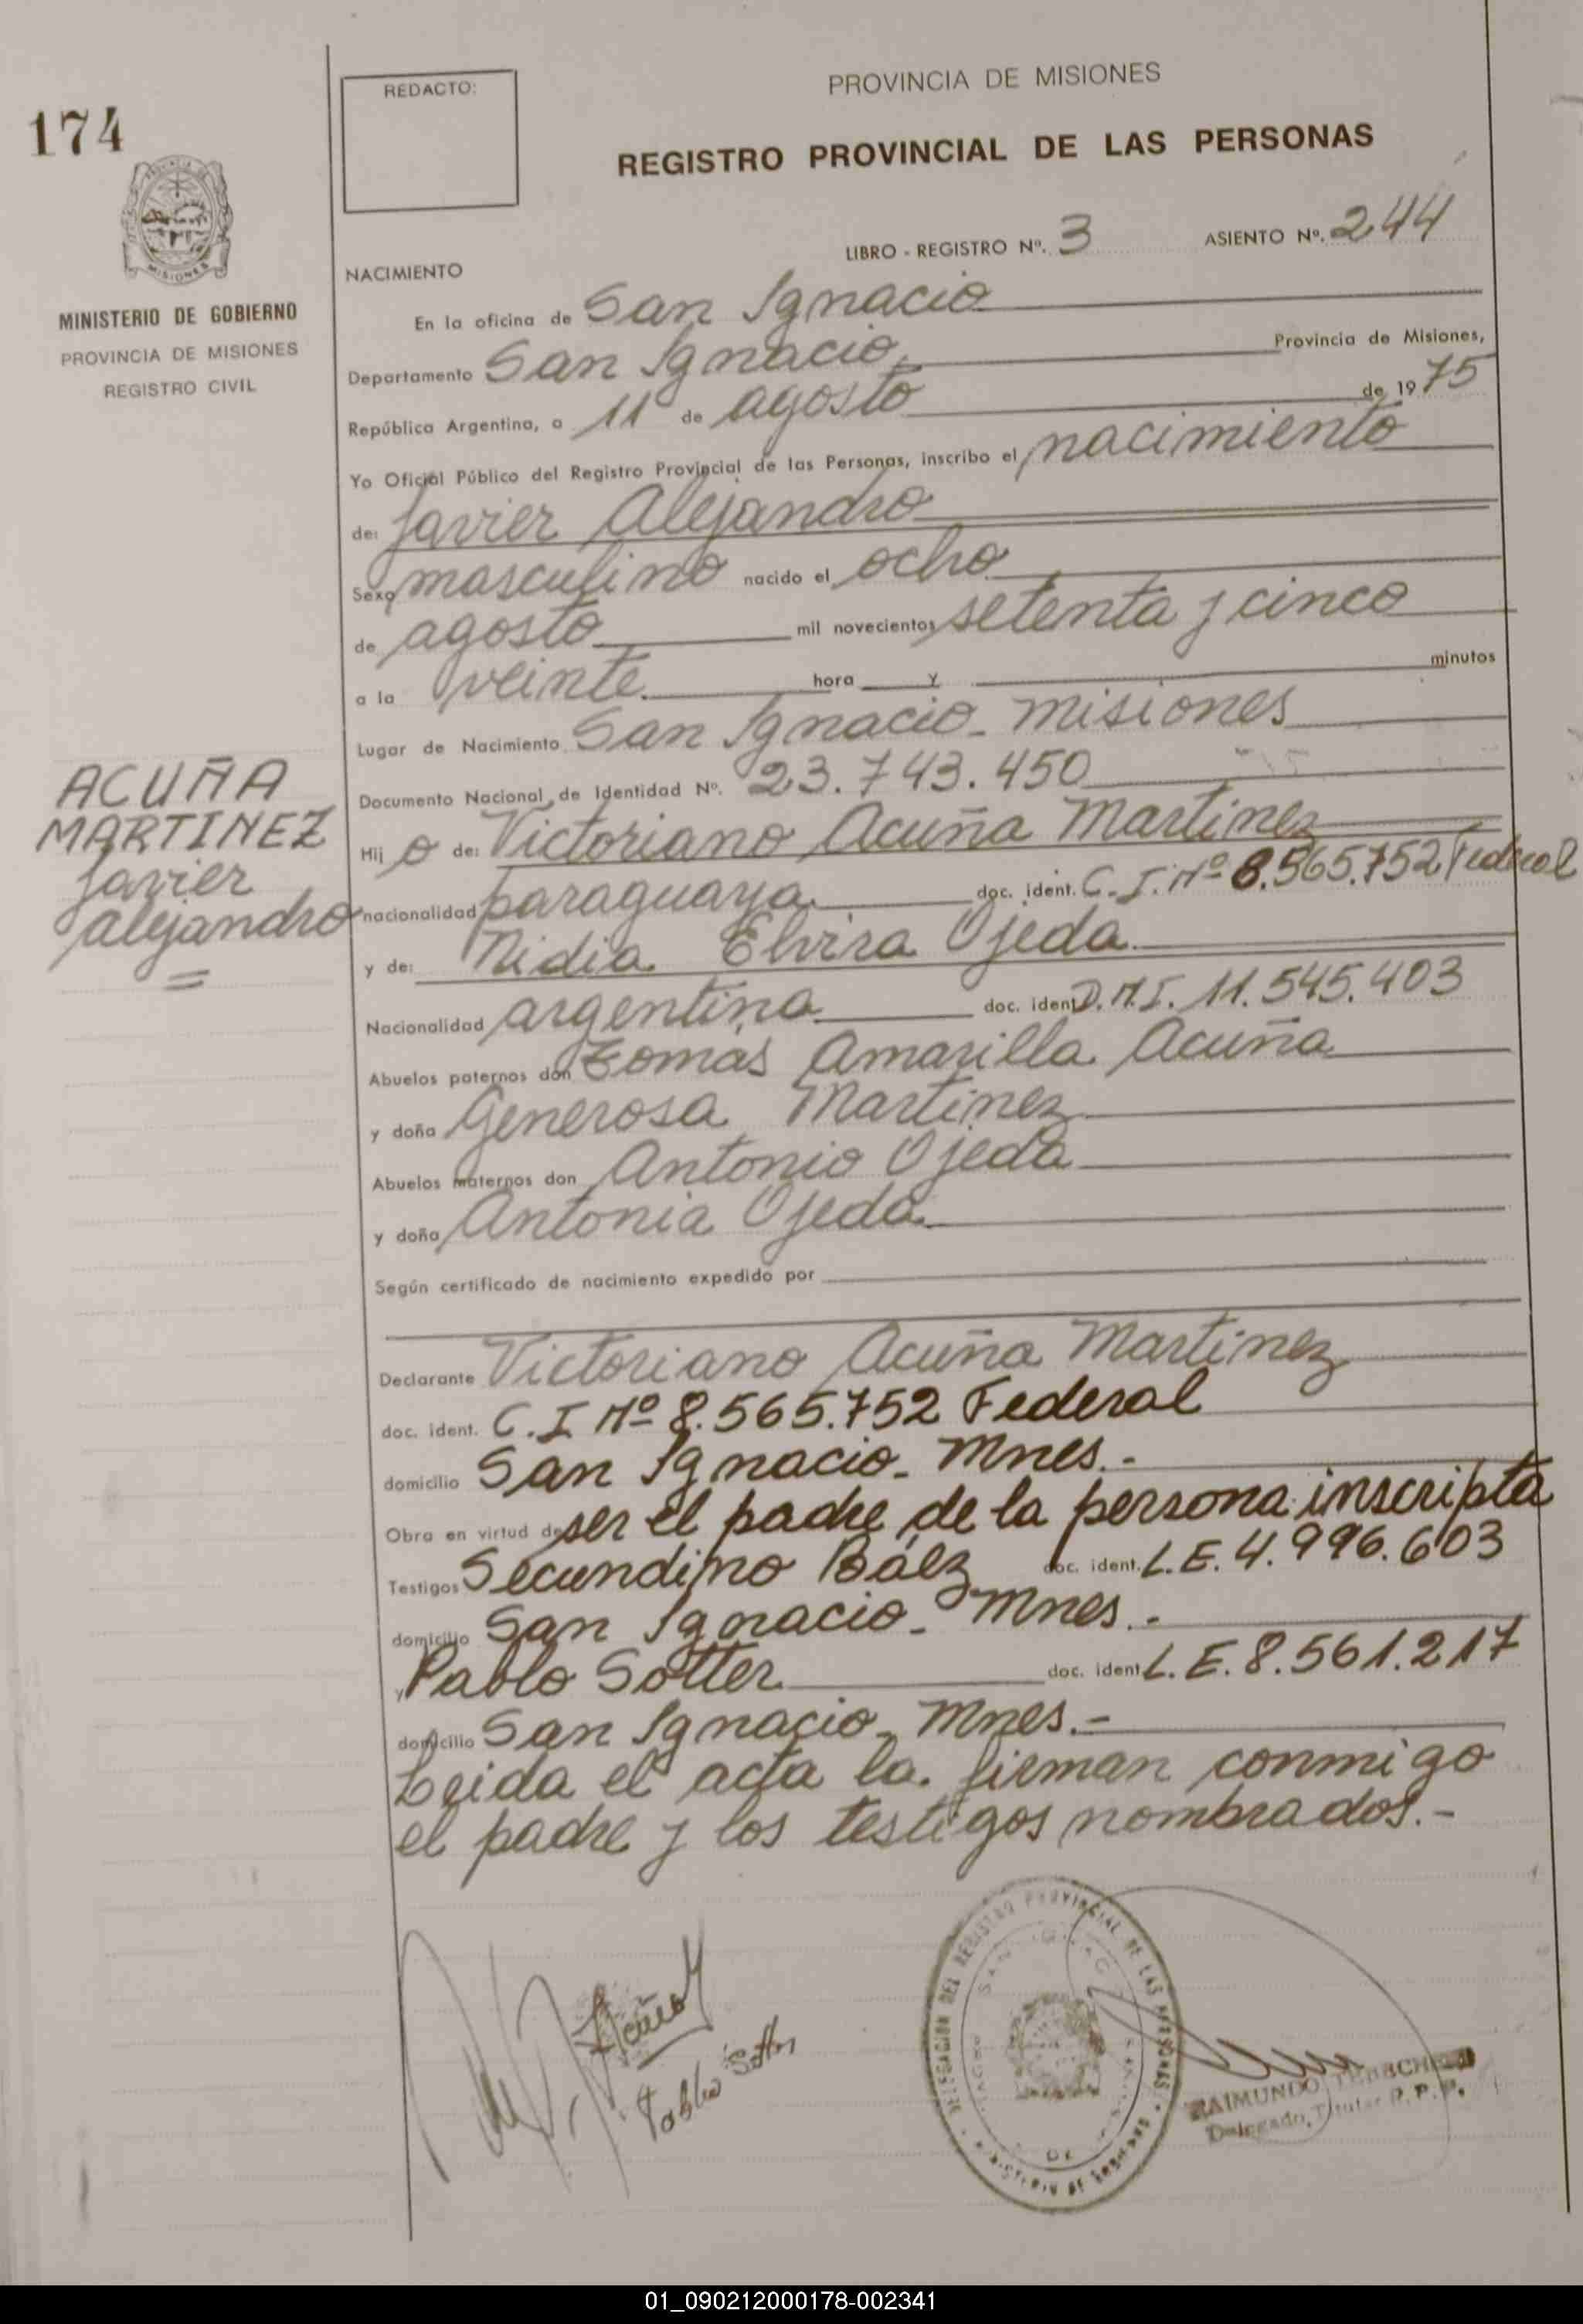 174
REDACTO:
PROVINCIA DE MISIONES
REGISTRO PROVINCIAL DE LAS PERSONAS
LIBRO - REGISTRO Nº. 3 ASIENTO Nº. 244
MISIONES
MINISTERIO DE GOBIERNO
PROVINCIA DE MISIONES
REGISTRO CIVIL
NACIMIENTO
En la oficina de San Ignacio
Departamento San Ignacio, Provincia de Misiones,
República Argentina, a 11 de agosto de 1975
Yo Oficial Público del Registro Provincial de las Personas, inscribo el nacimiento
de: Javier Alejandro
Sexo masculino nacido el ocho
de agosto mil novecientos setenta y cinco
a la veinte hora y minutos
Lugar de Nacimiento San Ignacio - misiones
Documento Nacional de Identidad Nº. 23.743.450
ACUÑA
MARTINEZ
Javier
alejandro
Hij o de: Victoriano Acuña Martinez
nacionalidad paraguaya doc. ident. C. I. Nº 8.565.752 Federal
y de: Nidia Elvira Ojeda
Nacionalidad argentina doc. ident D.N.I. 11.545.403
Abuelos paternos don Tomás Amarilla Acuña
y doña Generosa Martinez
Abuelos maternos don Antonio Ojeda
y doña Antonia Ojeda
Según certificado de nacimiento expedido por
Declarante Victoriano Acuña Martinez
doc. ident. C. I Nº 8.565.752 Federal
domicilio San Ignacio - Mnes. -
Obra en virtud de ser el padre de la persona inscripta
Testigos Secundino Báez doc. ident. L.E. 4.996.603
domicilio San Ignacio - Mnes. -
y Pablo Sotter doc. ident L. E. 8.561.217
domicilio San Ignacio - Mnes. -
Leida el acta la firman conmigo
el padre y los testigos nombrados. -
Acuña
Pablo Sotter
DELEGACION DEL REGISTRO PROVINCIAL DE LAS PERSONAS
RAIMUNDO
Delegado, Titular R. P. P.
01_090212000178-002341